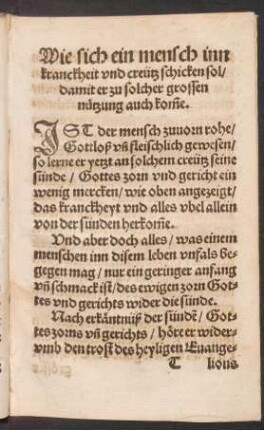 Wie sich ein mensch inn
kranckheit vnd creütz schicken sol/
damit er zu solcher grossen
nützung auch kom̃e.
IST der mensch zuuorn rohe/
Gottloß vñ fleischlich gewesen/
so lerne er yetzt an solchem creütz seine
sünde/ Gottes zorn vnd gericht ein
wenig mercken/ wie oben angezeigt/
das kranckheyt vnd alles vbel allein
von der sünden herkom̃e.
Vnd aber doch alles/ was einem
menschen inn disem leben vnfals be-
gegen mag/ nur ein geringer anfang
vñ schmack ist/ des ewigen zorn Got-
tes vnd gerichts wider die sünde.
Nach erkäntnüß der sündẽ/ Got-
tes zorns vñ gerichts/ höre er wider-
vmb den trost des heyligen Euange-
T lions